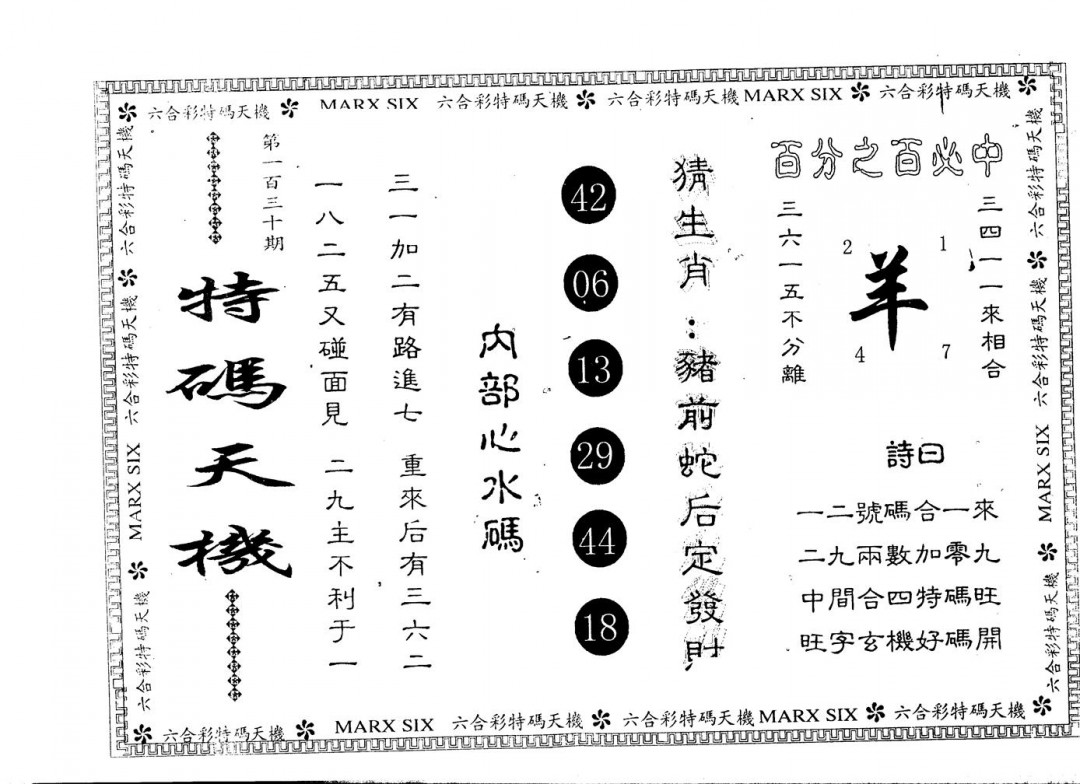 六合彩特碼天機 MARX SIX 六合彩特碼天機 六合彩特碼天機 MARX SIX 六合彩特碼天機
百分之百必中
三四一一來相合
1
羊
2
7
4
三六一五不分離
詩曰
一二號碼合一來
二九兩數加零九
中間合四特碼旺
旺字玄機好碼開
猜生肖：豬前蛇后定發財
42
06
13
29
44
18
內部心水碼
三一加二有路進七 重來后有三六二
一八二五又碰面見 二九主不利于一
第一百三十期
特碼天機
六合彩特碼天機 六合彩特碼天機 MARX SIX 六合彩特碼天機
六合彩特碼天機 六合彩特碼天機 MARX SIX 六合彩特碼天機
六合彩特碼天機 MARX SIX 六合彩特碼天機 六合彩特碼天機 MARX SIX 六合彩特碼天機